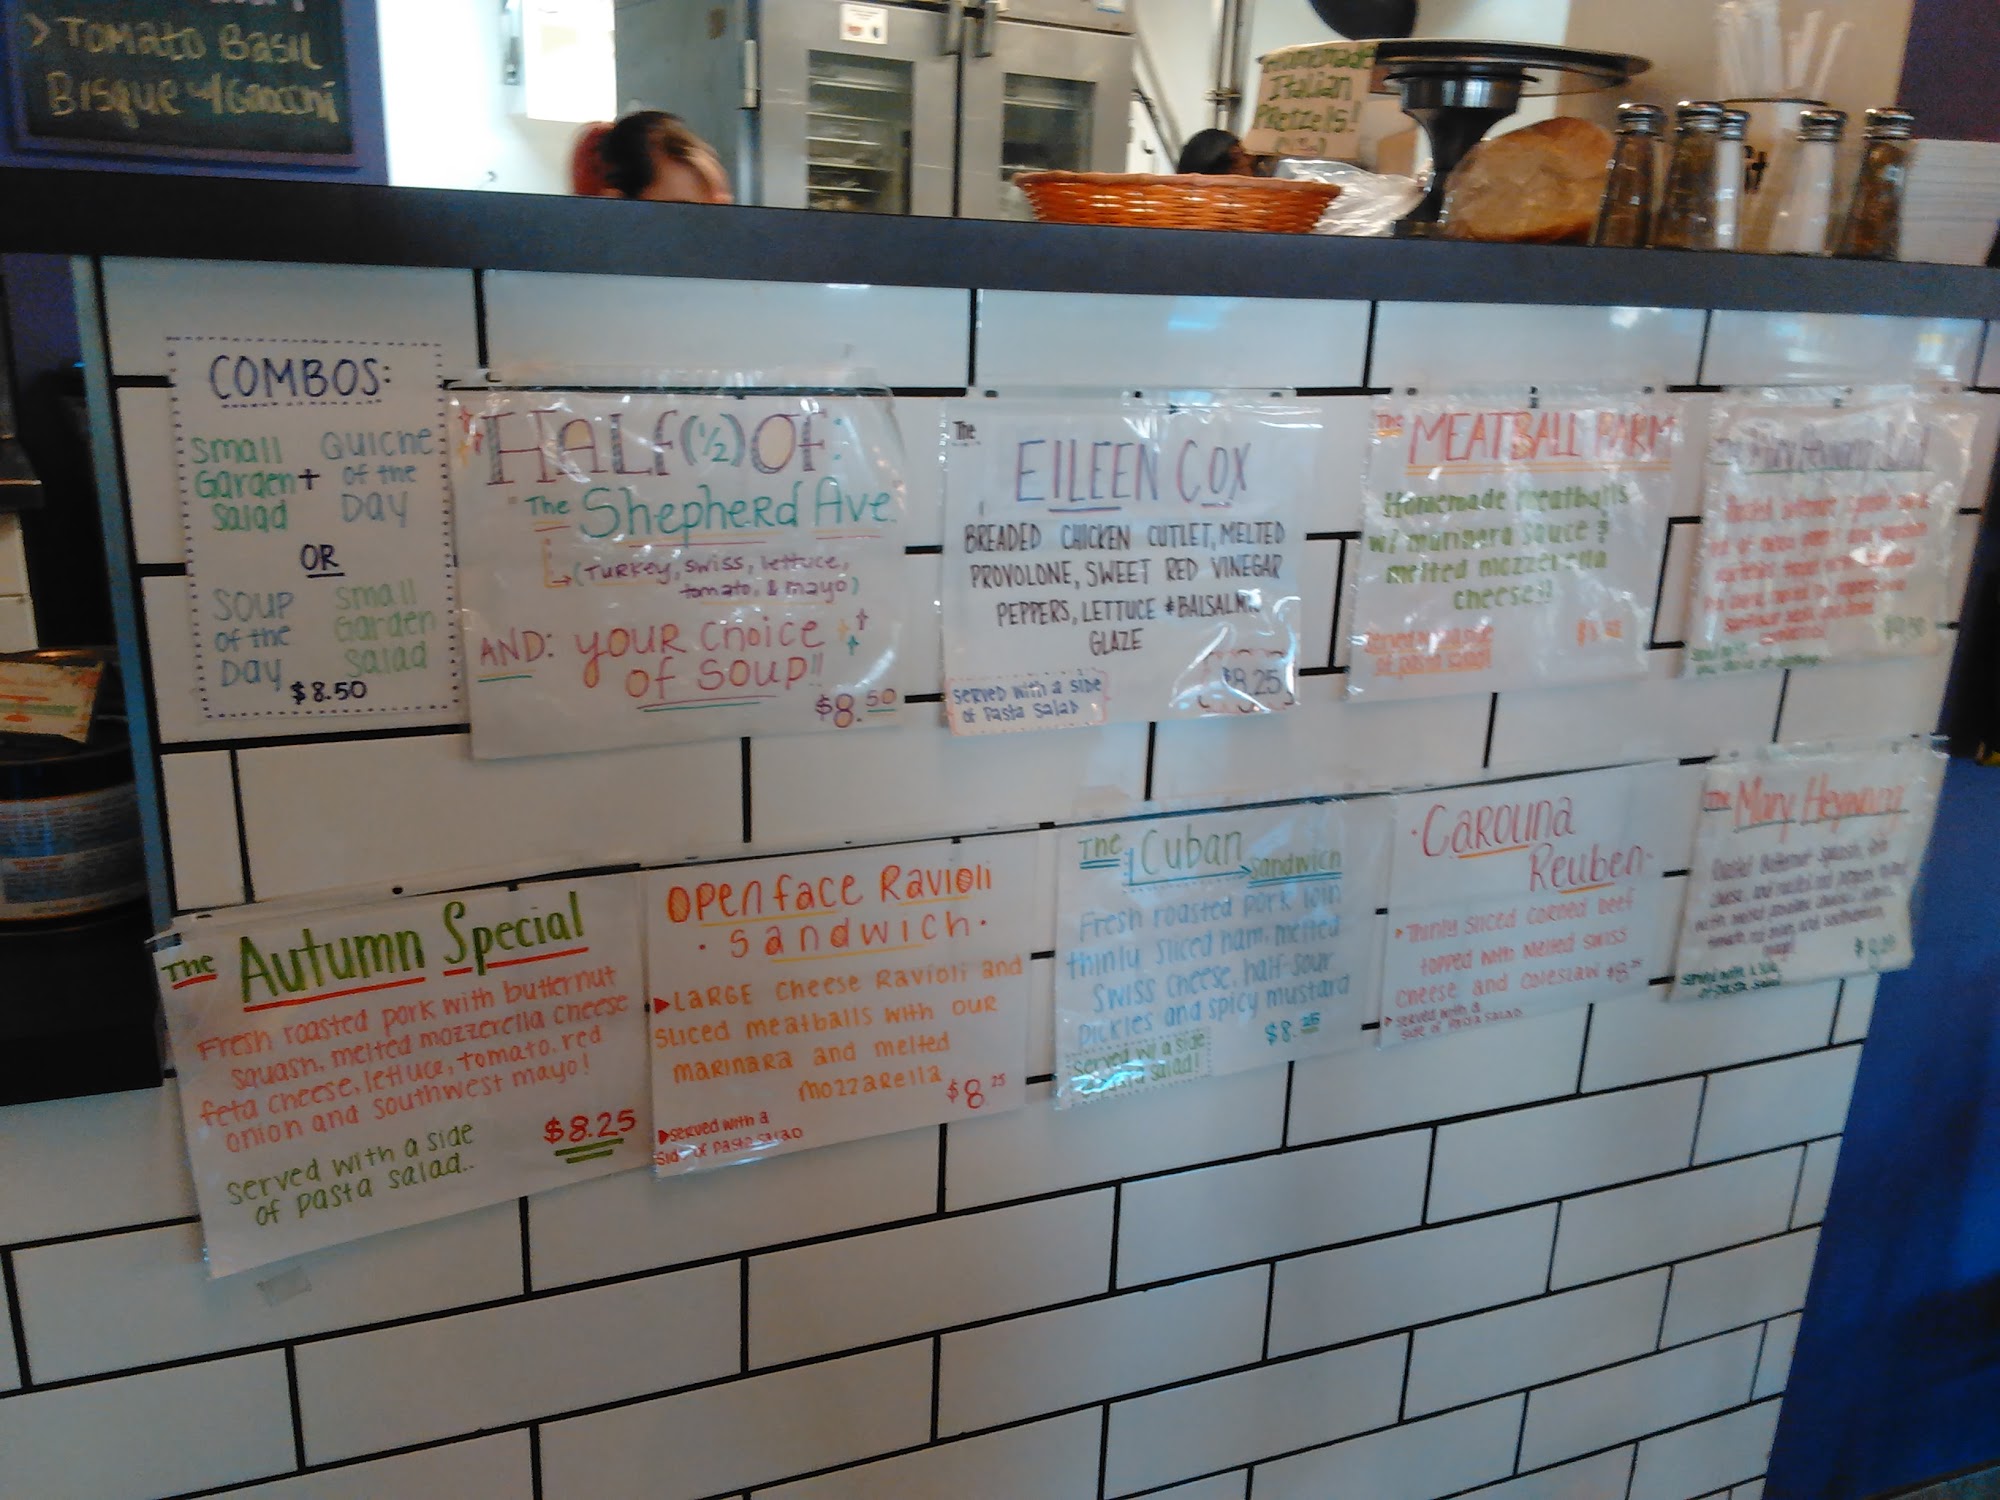 > Tomato Basil
Bisque w/ Gnocchi
Homemade
Italian
Pretzels!
COMBOS:
Small Garden Salad + Quiche of the Day
OR
Soup of the Day Small Garden Salad
$8.50
HALF (1/2) OF:
"The Shepherd Ave"
(Turkey, swiss, lettuce,
tomato, & mayo)
AND: your choice
of soup!!
$8.50
The
EILEEN COX
BREADED CHICKEN CUTLET, MELTED
PROVOLONE, SWEET RED VINEGAR
PEPPERS, LETTUCE & BALSALMIC
GLAZE
$8.25
served with a side
of pasta salad
The
MEATBALL PARM
Homemade meatballs
w/ marinara sauce &
melted mozzerella
cheese!!
served w/ a side
of pasta salad!
The Autumn Special
Fresh roasted pork with butternut
squash, melted mozzerella cheese
feta cheese, lettuce, tomato, red
onion and southwest mayo!
$8.25
served with a side
of pasta salad..
Open face Ravioli
· Sandwich ·
Large cheese Ravioli and
sliced meatballs with our
marinara and melted
mozzarella
$8.25
served with a
side of pasta salad
The Cuban
Sandwich
Fresh roasted pork loin
thinly sliced ham, melted
Swiss cheese, half-sour
pickles and spicy mustard
$8.25
served w/ a side
pasta salad!
· Carolina
Reuben ·
Thinly sliced corned beef
topped with melted swiss
cheese and coleslaw $8.25
served with a
side of pasta salad
The Mary Heywang
served with a side
of pasta salad